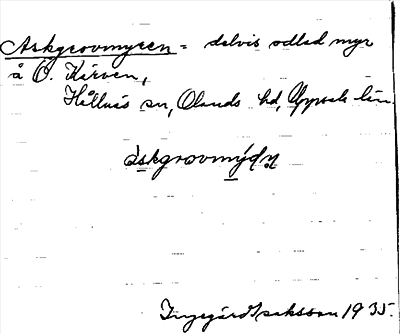 Askgrovmyren = delvis odlad myr
å Ö. Kärven,
Hållnäs sn, Olands hd, Uppsala län.
Ingegärd Isaksson 1935.